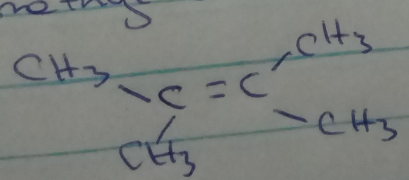 CH3
CH3 C = C
CH3
CH3